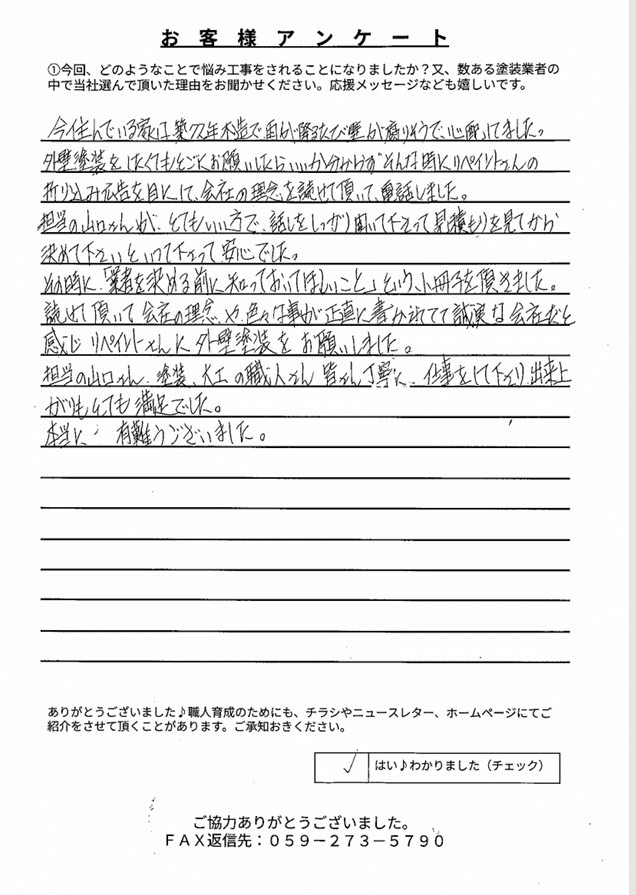 お客様アンケート
①今回、どのようなことで悩み工事をされることになりましたか？又、数ある塗装業者の
中で当社選んで頂いた理由をお聞かせください。応援メッセージなども嬉しいです。
今住んでいる家は築 年木造で雨が降るたび壁が腐りそうで、心配してました。
外壁塗装をしたくてもどこにお願いしたらいいか分からず そんな時にリペイントさんの
折り込み広告を目にして、会社の理念を読ませて頂いて、電話しました。
担当の山口さんが、とてもいい方で、話しをしっかり聞いて下さって見積もりを見てから
決めて下さいといって下さって安心でした。
その時に、「業者を決める前に知っておいてほしいこと」という、小冊子を頂きました。
読ませて頂いて会社の理念や、色々な事が正直に書かれてて誠実な会社だと
感じリペイントさんに外壁塗装をお願いしました。
担当の山口さん、塗装、大工の職人さん皆さん丁寧に、仕事をして下さり、出来上
がりもとても満足でした。
本当に 有難うございました。
ありがとうございました♪職人育成のためにも、チラシやニュースレター、ホームページにてご
紹介をさせて頂くことがあります。ご承知おきください。
✓ はい♪わかりました（チェック）
ご協力ありがとうございました。
ＦＡＸ返信先：０５９－２７３－５７９０